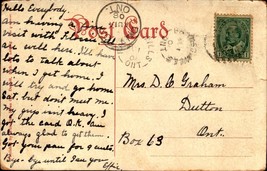 Post Card
Hello Everybody.
Am having a
visit with F. 
are well here. I'll have
lots to talk about
when I get home. I
will try and go home
Sat. but don't meet me.
My grip isn't heavy. I
got the card O.K. am
always glad to get them.
Got your pan for 9 cents.
Bye-bye until I see you
Effie.
Mrs. D. C. Graham
Dutton
Ont.
Box 63
ONT.